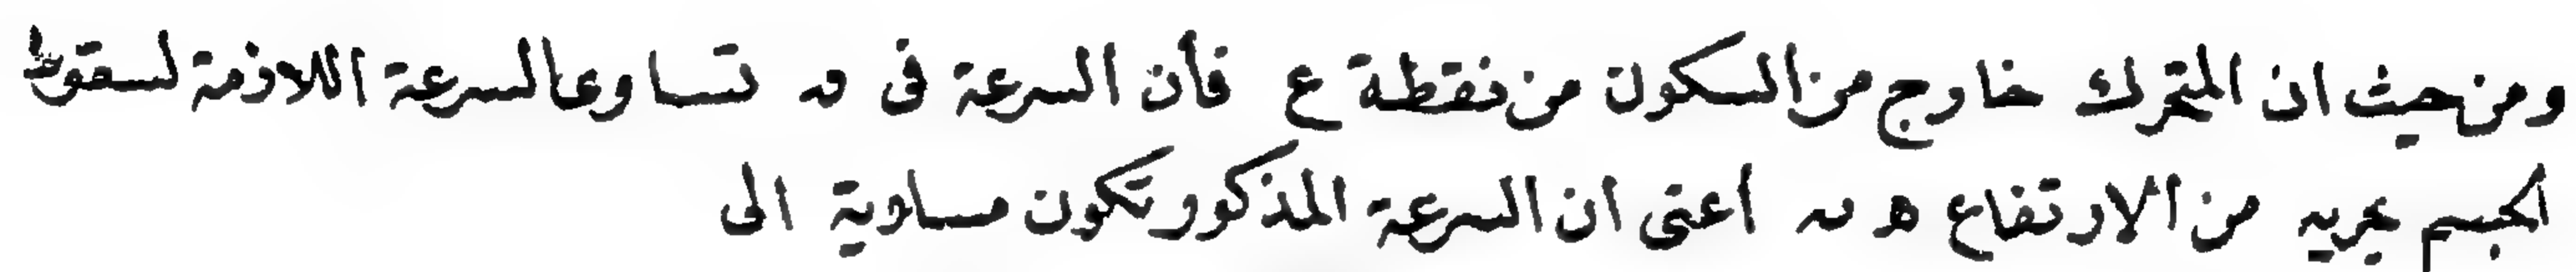 ومن حيث ان المتحرك خارج من السكون من نقطة ع فأن السرعة فى ں تساوى السرعة اللازمة لسقوط
الجسم بحريه من الارتفاع ه ں اعنى ان السرعة المذكور تكون مساوية الى